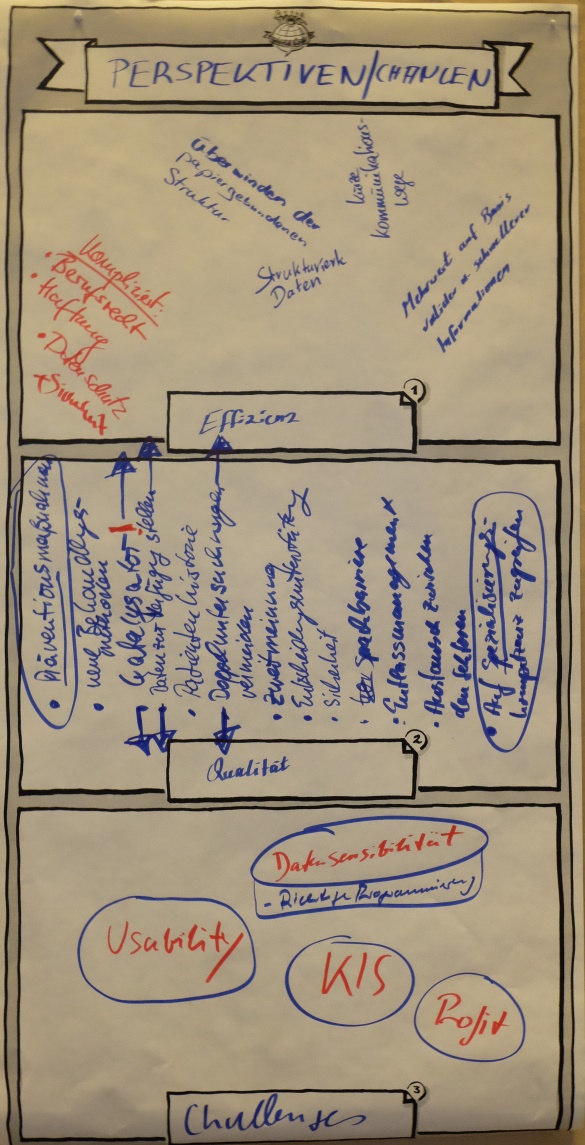 PERSPEKTIVEN/CHANCEN
Überwinden der
papiergebundenen
Struktur
kurze
Kommunikations-
wege
Strukturierte
Daten
Mehrwert auf Basis
valider u. schnellerer
Informationen
Kompliziert:
• Berufsrecht
• Haftung
• Datenschutz
+ Sicherheit
1
Effizienz
• Präventionsmaßnahmen
• neue Behandlungs-
methoden
Katalysator!
Daten zur Verfügung stellen
• Patientenhistorie
• Doppeluntersuchungen
vermeiden
• Zweitmeinung
• Entscheidungsunterstützung
• Sicherheit
• Sprachbarriere
• Entlassmanagement
• Austausch zwischen
den Sektoren
• Auf Spezialisierungs-
kompetenz zugreifen
2
Qualität
Datensensibilität
- Richtige Programmierung
Usability
KIS
Profit
3
Challenges